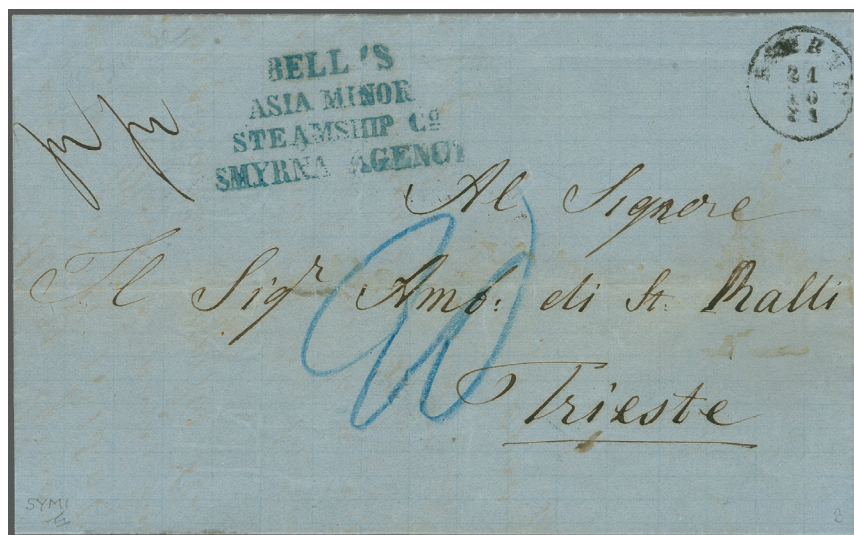 BELL'S
ASIA MINOR
STEAMSHIP Cº
SMYRNA AGENCY
SMYRNE
21
10
Al Signore
Il Sigr Amb: di St. Ralli
Trieste
SYMI